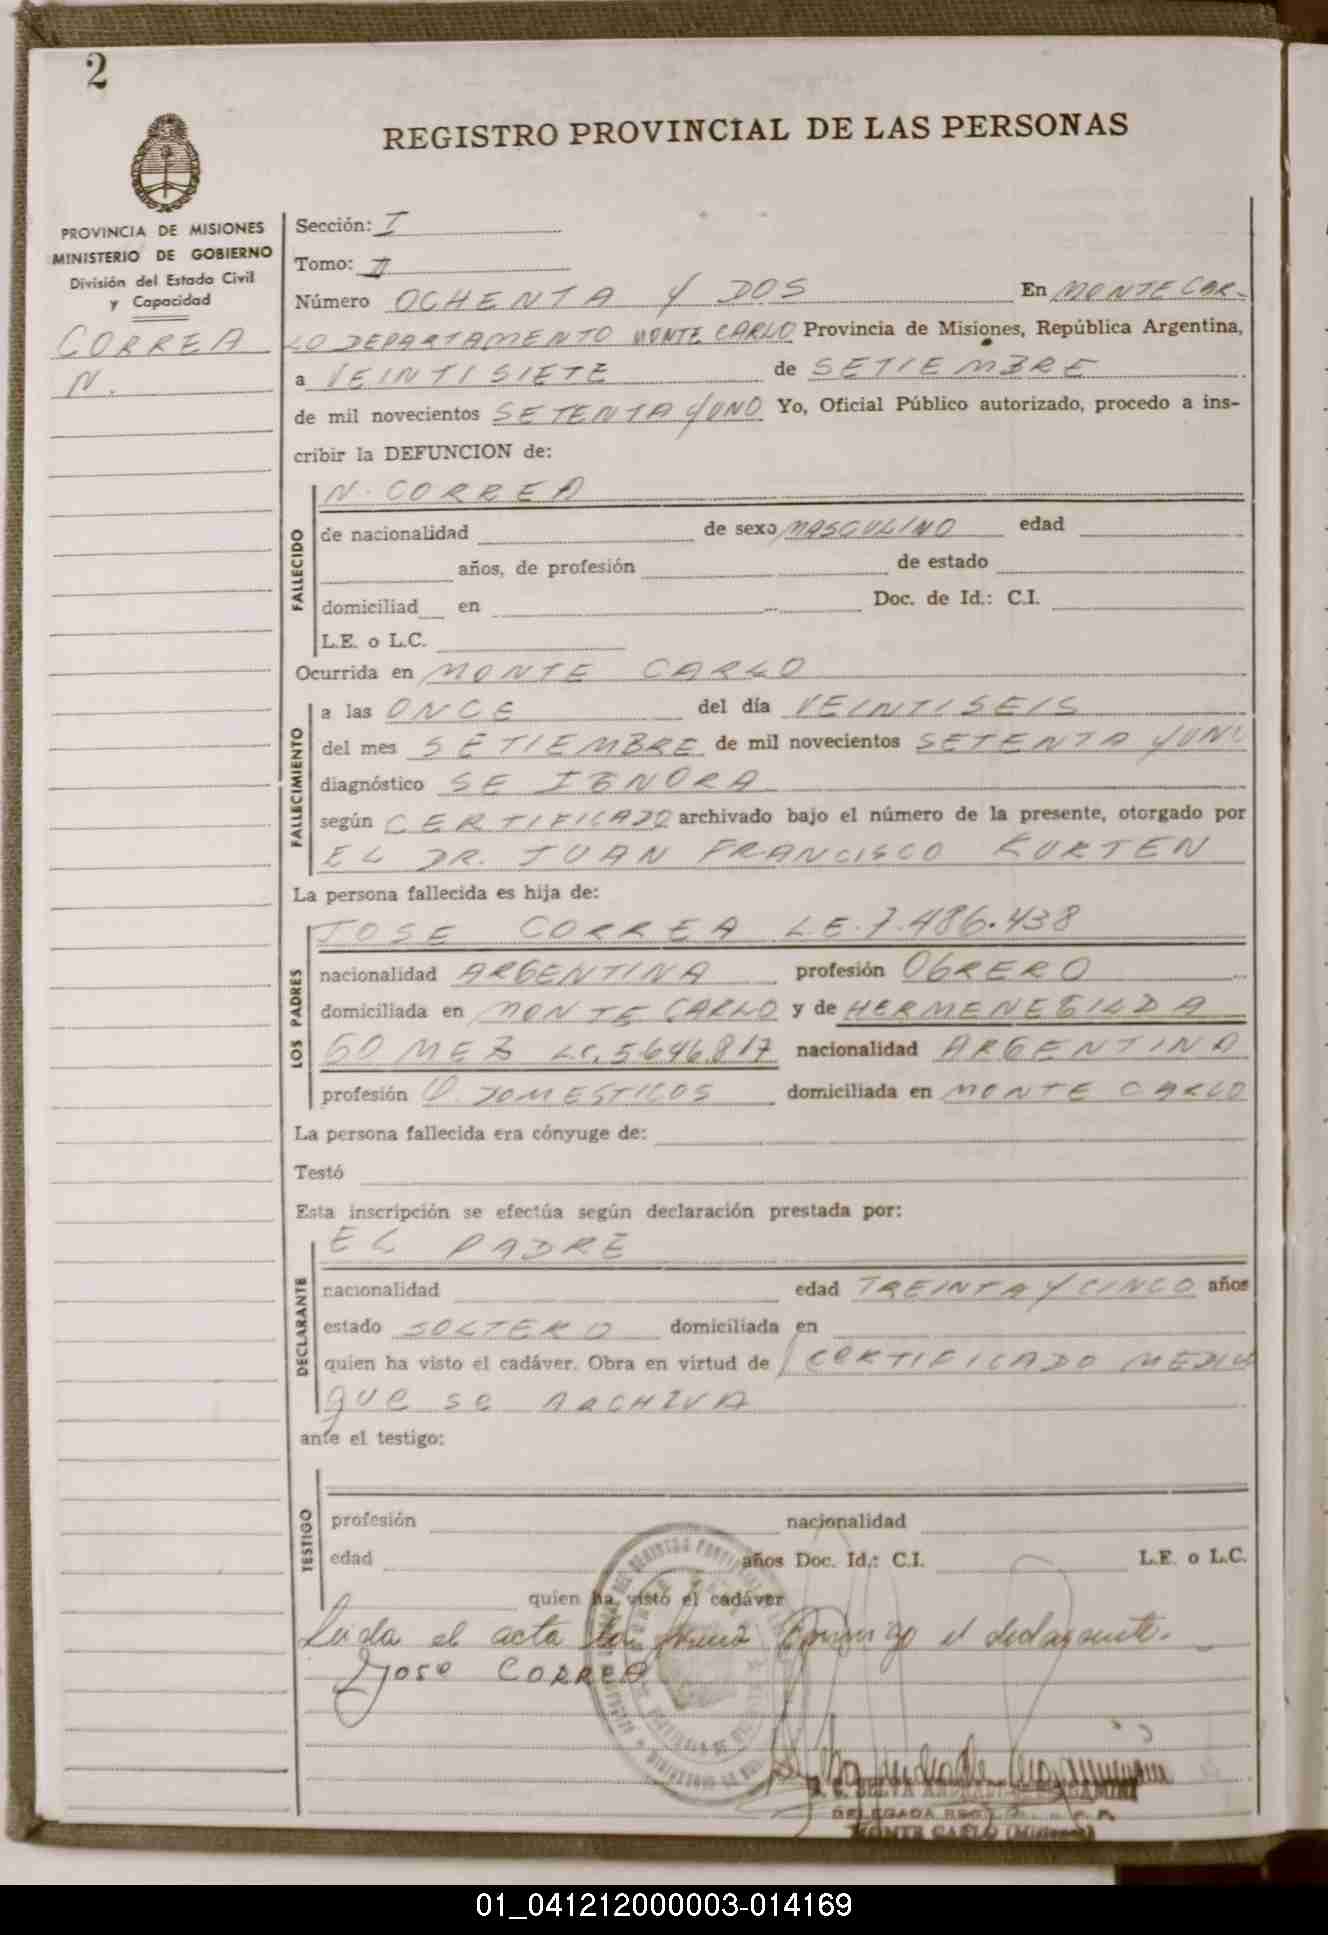 2
REGISTRO PROVINCIAL DE LAS PERSONAS
PROVINCIA DE MISIONES
MINISTERIO DE GOBIERNO
División del Estado Civil
y Capacidad
CORREA
N.
Sección: I
Tomo: II
Número OCHENTA Y DOS En MONTE CAR-
LO DEPARTAMENTO MONTE CARLO Provincia de Misiones, República Argentina,
a VEINTISIETE de SETIEMBRE
de mil novecientos SETENTA Y UNO Yo, Oficial Público autorizado, procedo a ins-
cribir la DEFUNCION de:
N. CORREA
FALLECIDO
de nacionalidad de sexo MASCULINO edad
años, de profesión de estado
domiciliad en Doc. de Id.: C.I.
L.E. o L.C.
Ocurrida en MONTE CARLO
FALLECIMIENTO
a las ONCE del día VEINTISEIS
del mes SETIEMBRE de mil novecientos SETENTA Y UNO
diagnóstico SE IGNORA
según CERTIFICADO archivado bajo el número de la presente, otorgado por
EL DR. JUAN FRANCISCO KURTEN
La persona fallecida es hija de:
JOSE CORREA L.E. 7.486.438
LOS PADRES
nacionalidad ARGENTINA profesión OBRERO
domiciliada en MONTE CARLO y de HERMENEGILDA
GOMEZ L.C. 5.646.817 nacionalidad ARGENTINA
profesión Q. DOMESTICOS domiciliada en MONTE CARLO
La persona fallecida era cónyuge de:
Testó
Esta inscripción se efectúa según declaración prestada por:
EL PADRE
DECLARANTE
nacionalidad edad TREINTA Y CINCO años
estado SOLTERO domiciliada en
quien ha visto el cadáver. Obra en virtud de CERTIFICADO MEDICO
QUE SE ARCHIVA
ante el testigo:
TESTIGO
profesión nacionalidad
edad años Doc. Id.: C.I. L.E. o L.C.
quien ha visto el cadáver
Leida el acta la firmó conmigo el declarante.
Jose CORREA
DELEGADA
MONTE CARLO (Misiones)
01_041212000003-014169